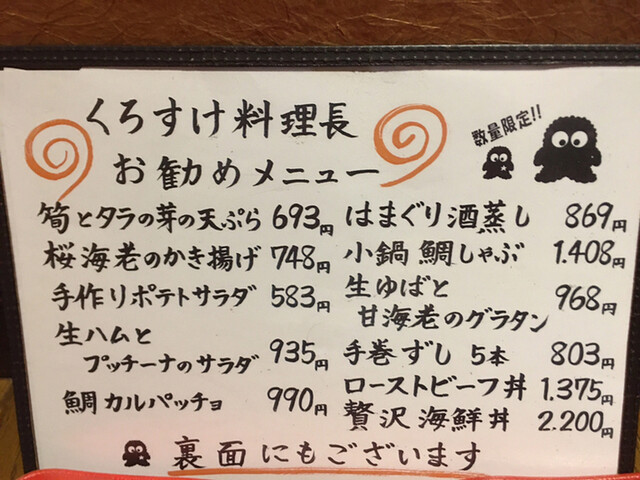 くろすけ料理長
お勧めメニュー
数量限定!!
筍とタラの芽の天ぷら 693円
桜海老のかき揚げ 748円
手作りポテトサラダ 583円
生ハムと
プッチーナのサラダ 935円
鯛カルパッチョ 990円
はまぐり酒蒸し 869円
小鍋鯛しゃぶ 1.408円
生ゆばと
甘海老のグラタン 968円
手巻ずし 5本 803円
ローストビーフ丼 1.375円
贅沢海鮮丼 2.200円
裏面にもございます